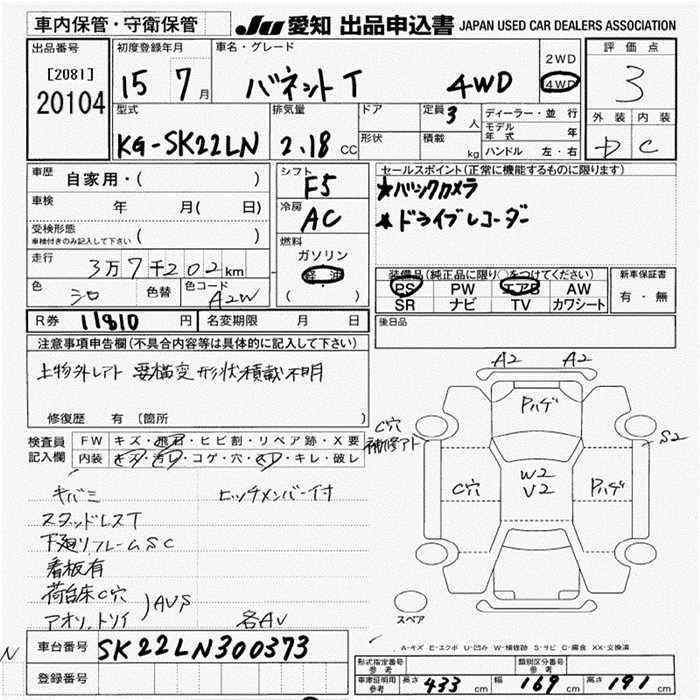 車内保管・守衛保管
JU 愛知 出品申込書 JAPAN USED CAR DEALERS ASSOCIATION
出品番号
[2081]
20104
初度登録年月
15 7月
車名・グレード
バネットT 4WD
2WD
4WD
評価点
3
外装 内装
D C
型式
KG-SK22LN
排気量
2.18 CC
ドア
形状
定員 3人
積載 kg
ディーラー・並行
モデル年式 年
ハンドル 左・右
車歴 自家用・( )
車検 年 月( 日)
受検形態
車検付きのみ記入して下さい ( )
走行 3万7千202km
色 シロ 色替 色コード A2W
シフト F5
冷房 AC
燃料
ガソリン
軽油
( )
セールスポイント(正常に機能するものに限ります)
★バックカメラ
★ドライブレコーダー
装備品(純正品に限り○をつけてください)
PS PW エアB AW
SR ナビ TV カワシート
新車保証書
有・無
R券 11810円 名変期限 月 日
後日品
注意事項申告欄(不具合内容等は具体的に記入して下さい)
形状積載不明
修復歴 有〔箇所 〕
検査員記入欄
FW キズ・飛石・ヒビ割・リペア跡・X要
内装 キズ・汚レ・コゲ・穴・スレ・キレ・破レ
キバミ ヒッチメンバー付
スタッドレスT
下廻リフレームSC
看板有
荷台床C穴
アオリ、トリイ )AVS 各AV
A2 A2
Pハゲ
C穴
補修アト
S2
C穴
W2
V2
Pハゲ
スペア
A-キズ E-エクボ U-凹み W-補修跡 S-サビ C-腐食 XX-交換済
車台番号 SK22LN300373
登録番号
形式指定番号
参考
類別区分番号
参考
車庫証明用
参考
長さ 433 cm 幅 169 cm 高さ 191 cm